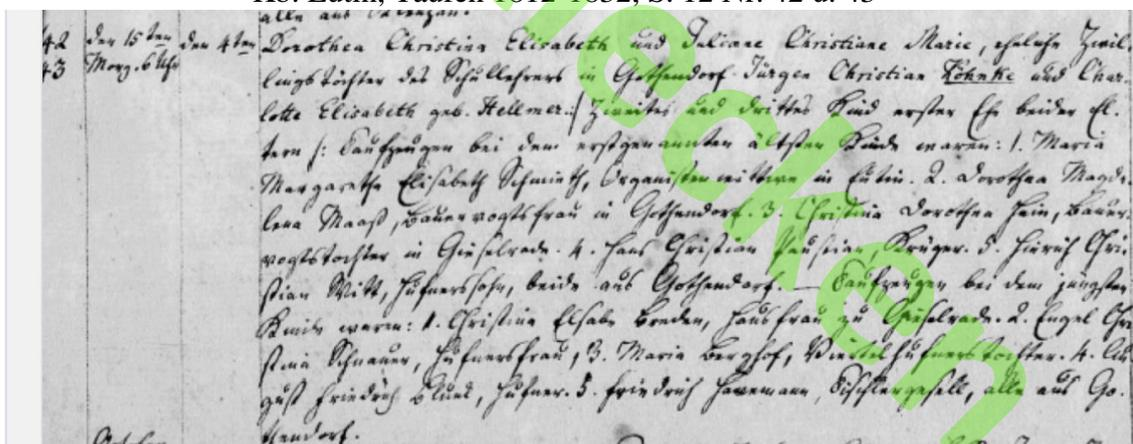 Kb. Eutin, Taufen 1812-1832, S. 12 Nr. 42 u. 43
alle aus
42 den 15ten den 4ten Dorothea Christina Elisabeth und Juliane Christiane Marie, eheliche Zwil-
43 Morg. 6 Uhr lingstöchter des Schullehrers in Gothendorf Jürgen Christian Köhnke und Char-
lotte Elisabeth geb. Hellmer. :/ Zweites und drittes Kind erster Ehe beider El-
tern /: Taufzeugen bei dem erstgenannten ältesten Kinde waren: 1. Maria
Margaretha Elisabeth Schmieth, Organistenwittwe in Eutin. 2. Dorothea Magda-
lena Maaß, Bauervogtsfrau in Gothendorf. 3. Christina Dorothea Hein, Bauer-
vogtstochter in Gieselrade. 4. Hans Christian Paustian, Krüger. 5. Hinrich Chri-
stian Witt, Hufnerssohn, beide aus Gothendorf. — Taufzeugen bei dem jüngsten
Kinde waren: 1. Christina Elsabe Breden, Hausfrau zu Gieselrade. 2. Engel Chri
stina Schnauer, Hufnersfrau, 3. Maria Berghof, Viertelhufnerstochter. 4. Au-
gust Friedrich Blunk, Hufner. 5. Friedrich Havemann, Tischlergesell, alle aus Go-
thendorf.
October
ecken